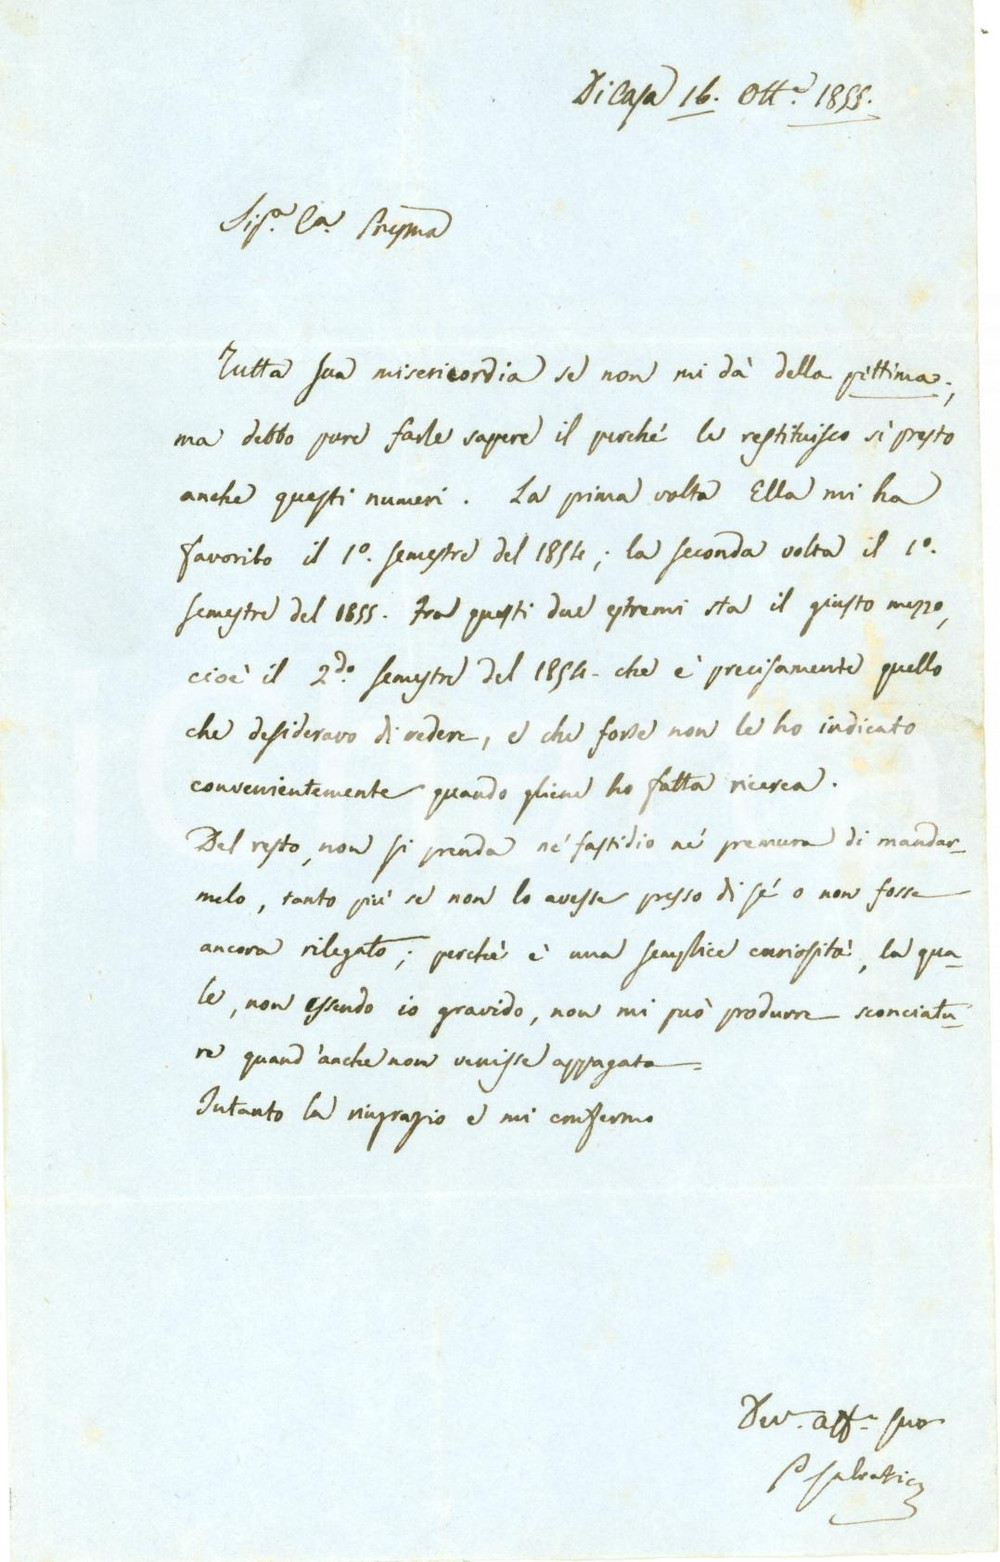 Di Casa 16. Ott.e 1855.
Sig.a Ca. Preg.ma
Tutta sua misericordia se non mi dà della pittima;
ma debbo pure farle sapere il perché le restituisco sì presto
anche questi numeri. La prima volta Ella mi ha
favorito il 1º. semestre del 1854; la seconda volta il 1º.
semestre del 1855. Fra questi due estremi sta il giusto mezzo,
cioè il 2do. semestre del 1854 - che è precisamente quello
che desideravo di vedere, e che forse non le ho indicato
convenientemente quando gliene ho fatta ricerca.
Del resto, non si prenda né fastidio né premura di mandar-
melo, tanto più se non lo avesse presso di sé o non fosse
ancora rilegato; perchè è una semplice curiosità, la qua-
le, non essendo io gravido, non mi può produrre sconciatu-
re quand'anche non venisse appagata.
Intanto la ringrazio e mi confermo
Dev. aff. suo
P Selvatico